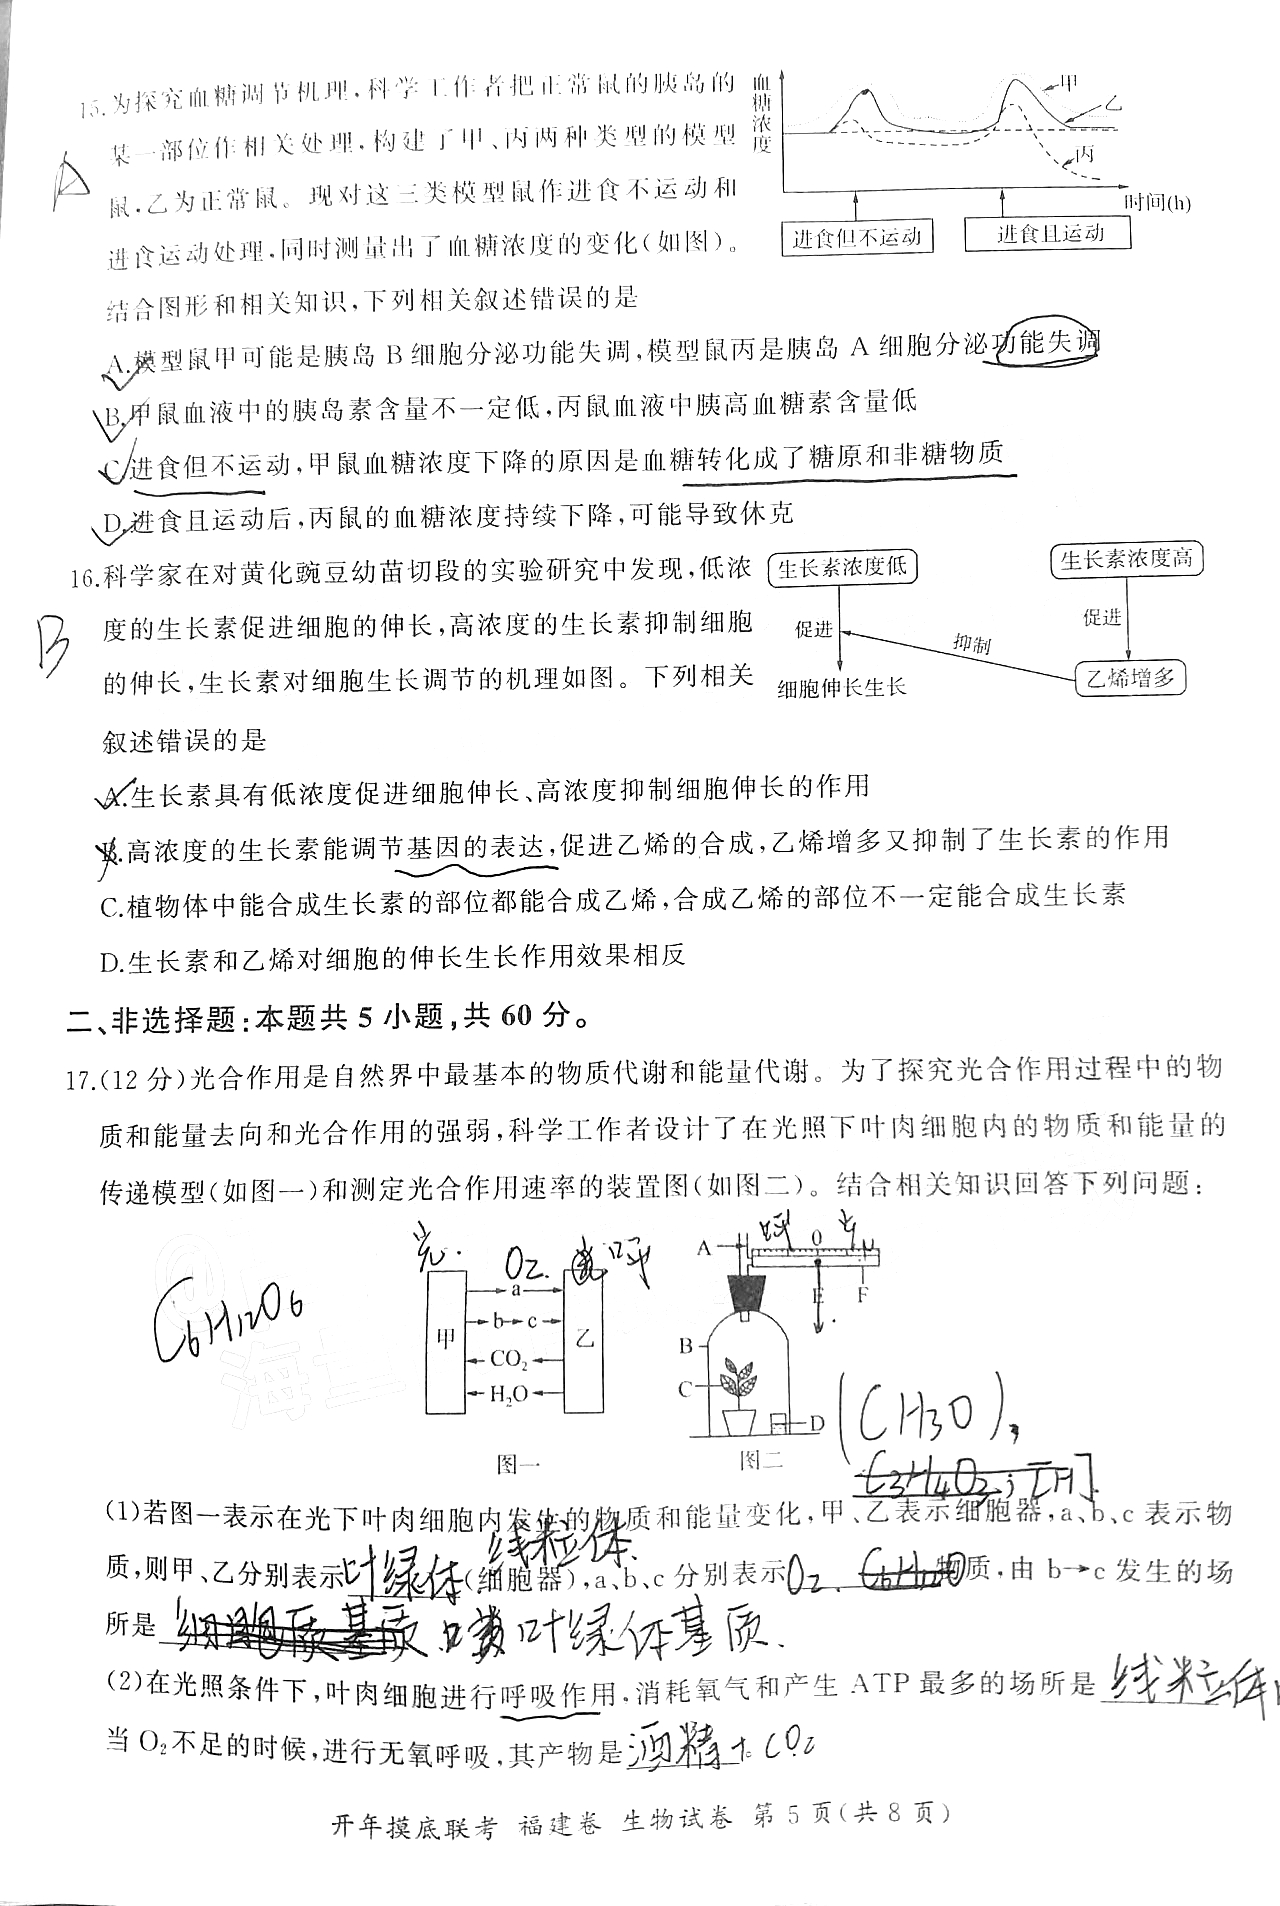 15.为探究血糖调节机理,科学工作者把正常鼠的胰岛的
某一部位作相关处理,构建了甲、丙两种类型的模型
鼠,乙为正常鼠。现对这三类模型鼠作进食不运动和
进食运动处理,同时测量出了血糖浓度的变化(如图)。
结合图形和相关知识,下列相关叙述错误的是
A
血糖浓度
甲
乙
丙
时间(h)
进食但不运动
进食且运动
A.模型鼠甲可能是胰岛 B 细胞分泌功能失调,模型鼠丙是胰岛 A 细胞分泌功能失调
B.甲鼠血液中的胰岛素含量不一定低,丙鼠血液中胰高血糖素含量低
C.进食但不运动,甲鼠血糖浓度下降的原因是血糖转化成了糖原和非糖物质
D.进食且运动后,丙鼠的血糖浓度持续下降,可能导致休克
16.科学家在对黄化豌豆幼苗切段的实验研究中发现,低浓
度的生长素促进细胞的伸长,高浓度的生长素抑制细胞
的伸长,生长素对细胞生长调节的机理如图。下列相关
叙述错误的是
B
生长素浓度低
生长素浓度高
促进
促进
抑制
细胞伸长生长
乙烯增多
A.生长素具有低浓度促进细胞伸长、高浓度抑制细胞伸长的作用
B.高浓度的生长素能调节基因的表达,促进乙烯的合成,乙烯增多又抑制了生长素的作用
C.植物体中能合成生长素的部位都能合成乙烯,合成乙烯的部位不一定能合成生长素
D.生长素和乙烯对细胞的伸长生长作用效果相反
二、非选择题:本题共 5 小题,共 60 分。
17.(12 分)光合作用是自然界中最基本的物质代谢和能量代谢。为了探究光合作用过程中的物
质和能量去向和光合作用的强弱,科学工作者设计了在光照下叶肉细胞内的物质和能量的
传递模型(如图一)和测定光合作用速率的装置图(如图二)。结合相关知识回答下列问题:
光.
O2.
呼
C6H12O6
甲
a
b→c
CO₂
H₂O
乙
图一
呼
光
A
0
E
F
B
C
D
图二
(CH3O),
C3H4O3; [H]
(1)若图一表示在光下叶肉细胞内发生的物质和能量变化,甲、乙表示细胞器,a、b、c 表示物
线粒体.
质,则甲、乙分别表示叶绿体(细胞器),a、b、c 分别表示O2. 物质,由 b→c 发生的场
所是 细胞质基质 叶绿体基质.
(2)在光照条件下,叶肉细胞进行呼吸作用,消耗氧气和产生 ATP 最多的场所是线粒体
当 O₂ 不足的时候,进行无氧呼吸,其产物是酒精+CO2
开年摸底联考 福建卷 生物试卷 第 5 页(共 8 页)